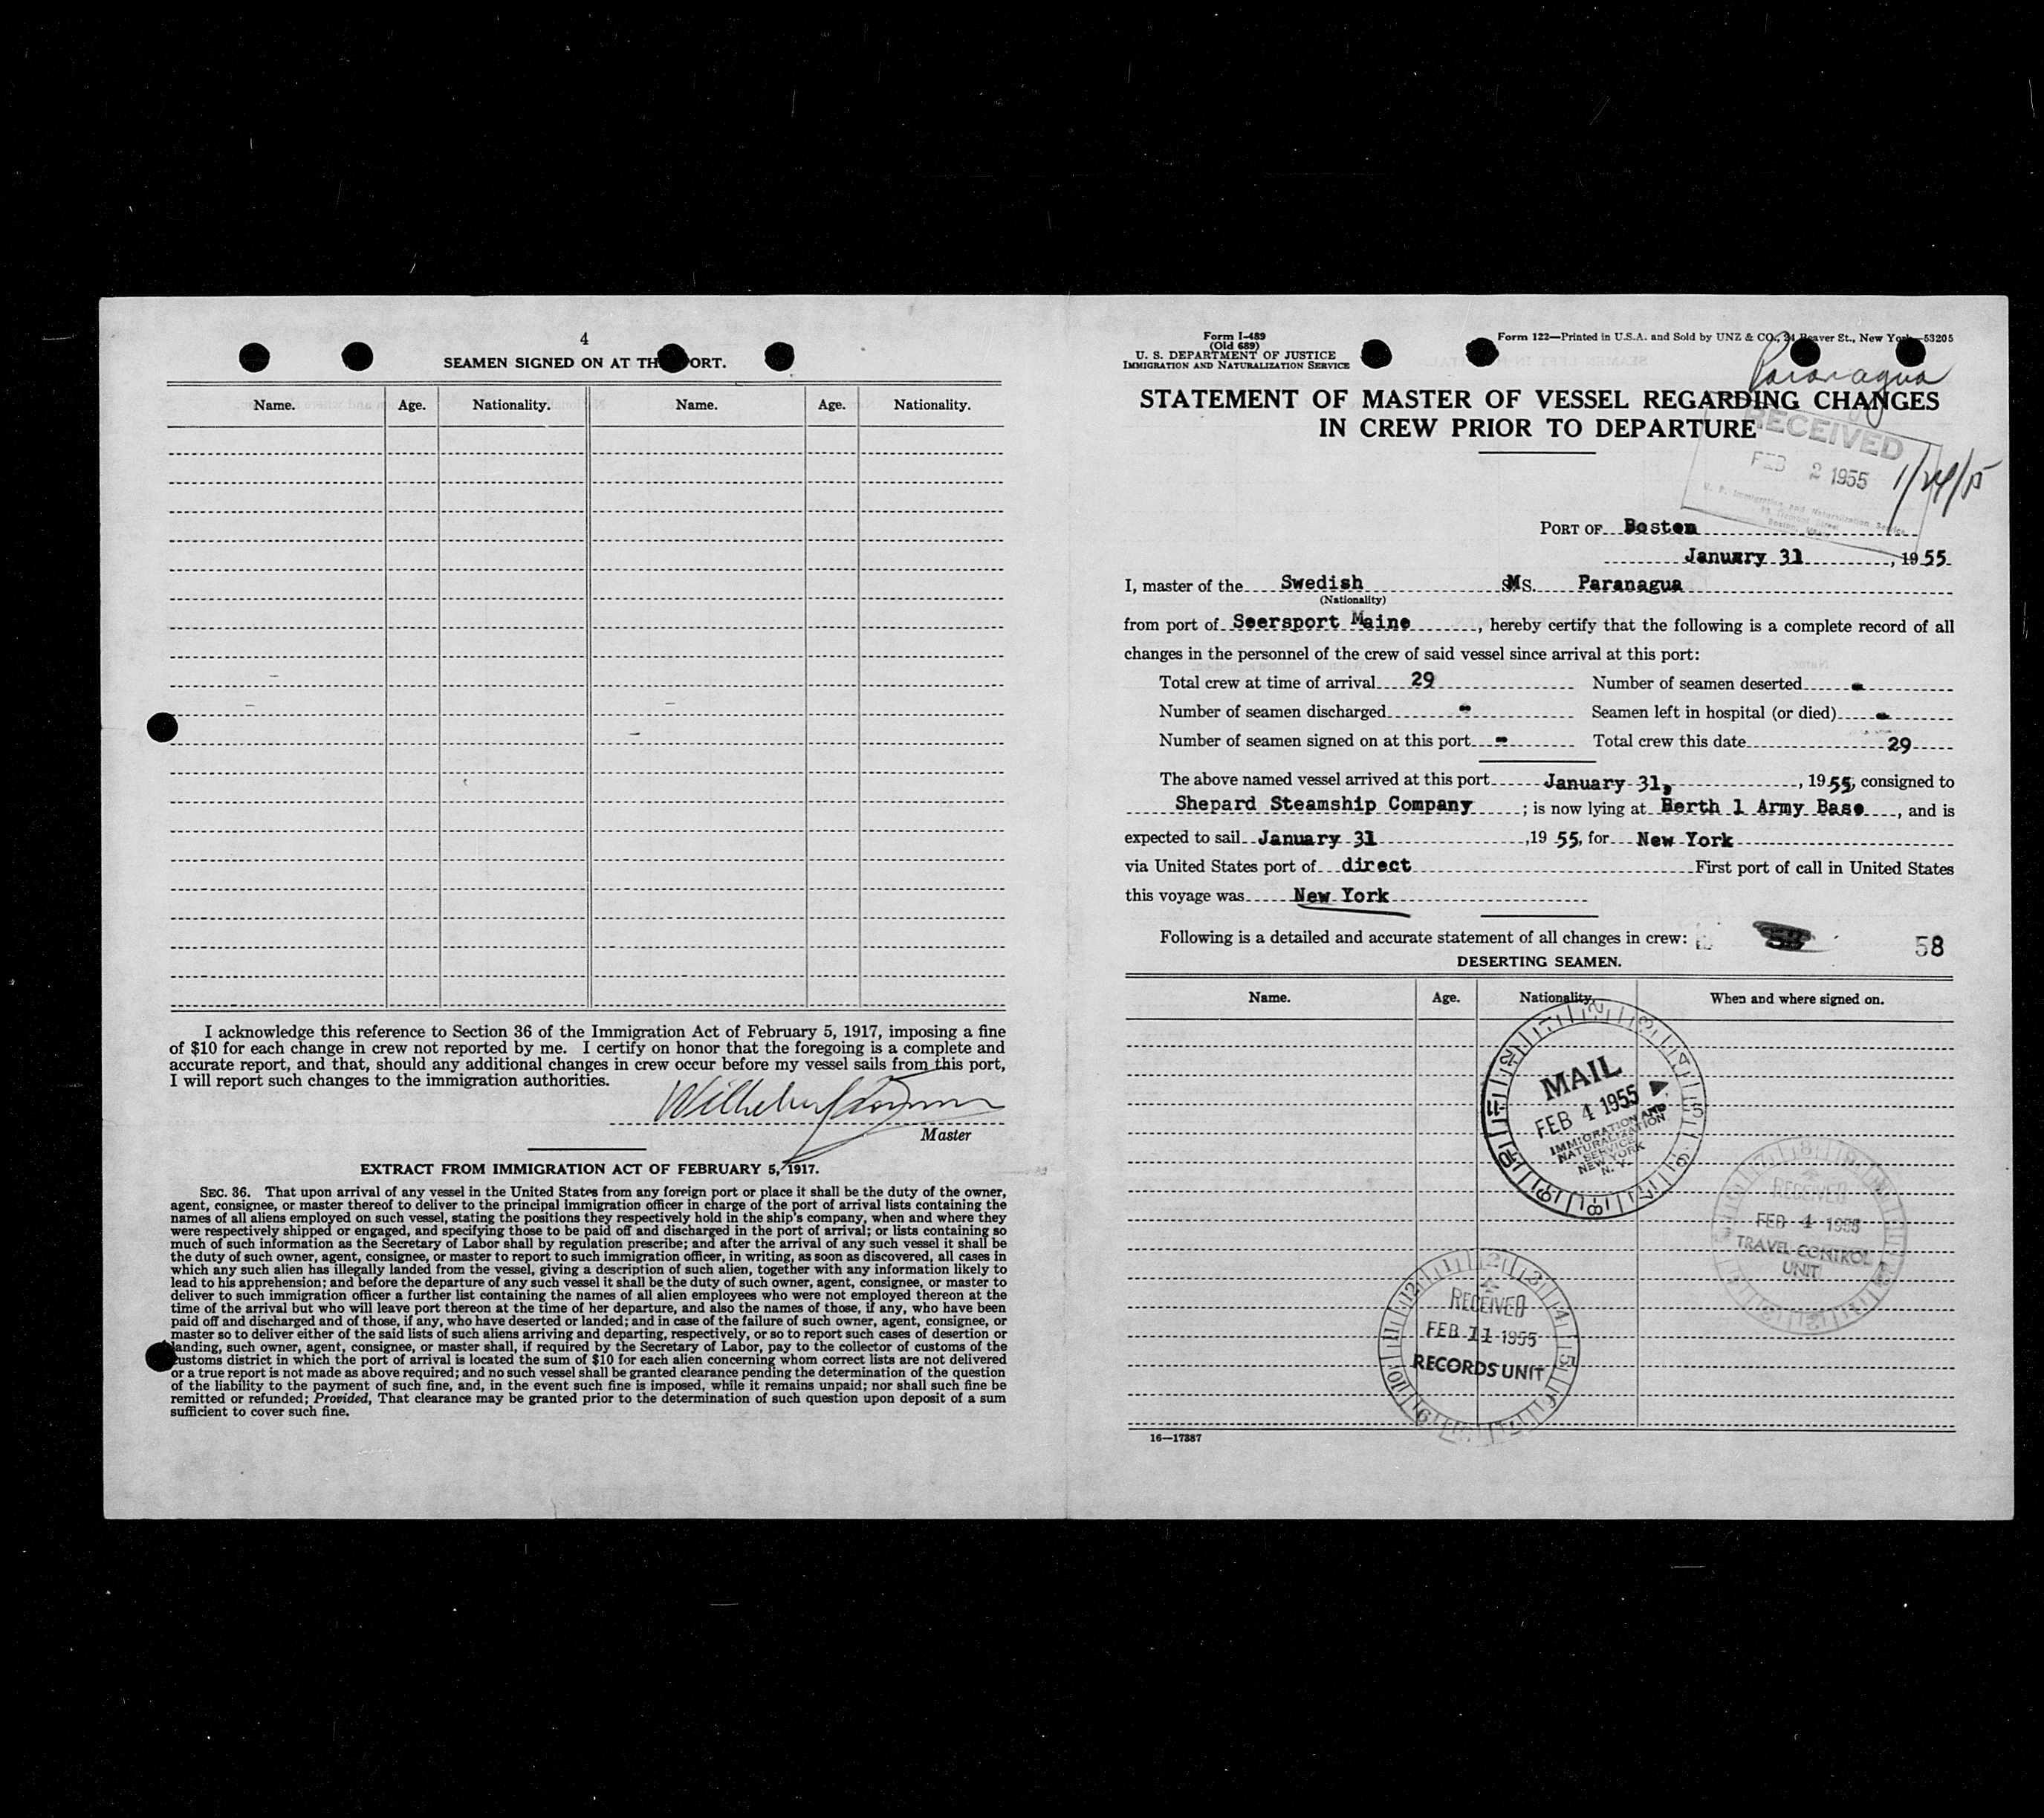 4
SEAMEN SIGNED ON AT TH ORT.
Name. Age. Nationality. Name. Age. Nationality.
I acknowledge this reference to Section 36 of the Immigration Act of February 5, 1917, imposing a fine
of $10 for each change in crew not reported by me. I certify on honor that the foregoing is a complete and
accurate report, and that, should any additional changes in crew occur before my vessel sails from this port,
I will report such changes to the immigration authorities.
Master
EXTRACT FROM IMMIGRATION ACT OF FEBRUARY 5, 1917.
SEC. 36. That upon arrival of any vessel in the United States from any foreign port or place it shall be the duty of the owner,
agent, consignee, or master thereof to deliver to the principal immigration officer in charge of the port of arrival lists containing the
names of all aliens employed on such vessel, stating the positions they respectively hold in the ship's company, when and where they
were respectively shipped or engaged, and specifying those to be paid off and discharged in the port of arrival; or lists containing so
much of such information as the Secretary of Labor shall by regulation prescribe; and after the arrival of any such vessel it shall be
the duty of such owner, agent, consignee, or master to report to such immigration officer, in writing, as soon as discovered, all cases in
which any such alien has illegally landed from the vessel, giving a description of such alien, together with any information likely to
lead to his apprehension; and before the departure of any such vessel it shall be the duty of such owner, agent, consignee, or master to
deliver to such immigration officer a further list containing the names of all alien employees who were not employed thereon at the
time of the arrival but who will leave port thereon at the time of her departure, and also the names of those, if any, who have been
paid off and discharged and of those, if any, who have deserted or landed; and in case of the failure of such owner, agent, consignee, or
master so to deliver either of the said lists of such aliens arriving and departing, respectively, or so to report such cases of desertion or
landing, such owner, agent, consignee, or master shall, if required by the Secretary of Labor, pay to the collector of customs of the
customs district in which the port of arrival is located the sum of $10 for each alien concerning whom correct lists are not delivered
or a true report is not made as above required; and no such vessel shall be granted clearance pending the determination of the question
of the liability to the payment of such fine, and, in the event such fine is imposed, while it remains unpaid; nor shall such fine be
remitted or refunded; Provided, That clearance may be granted prior to the determination of such question upon deposit of a sum
sufficient to cover such fine.
Form I-489
(Old 689)
U. S. DEPARTMENT OF JUSTICE
IMMIGRATION AND NATURALIZATION SERVICE
Form 122—Printed in U.S.A. and Sold by UNZ & CO., 24 Beaver St., New York—53205
Paranagua
STATEMENT OF MASTER OF VESSEL REGARDING CHANGES
IN CREW PRIOR TO DEPARTURE
RECEIVED
FEB 2 1955
U. S. Immigration and Naturalization Service
PORT OF Boston
January 31, 1955
I, master of the Swedish MS. Paranagua
(Nationality)
from port of Seersport Maine, hereby certify that the following is a complete record of all
changes in the personnel of the crew of said vessel since arrival at this port:
Total crew at time of arrival 29 Number of seamen deserted -
Number of seamen discharged - Seamen left in hospital (or died) -
Number of seamen signed on at this port - Total crew this date 29
The above named vessel arrived at this port January 31, , 1955, consigned to
Shepard Steamship Company ; is now lying at Berth 1 Army Base, and is
expected to sail January 31 ,19 55, for New York
via United States port of direct First port of call in United States
this voyage was New York
Following is a detailed and accurate statement of all changes in crew: 58
DESERTING SEAMEN.
Name. Age. Nationality. When and where signed on.
MAIL
FEB 4 1955
IMMIGRATION AND
NATURALIZATION
SERVICE
NEW YORK
N. Y.
RECEIVED
FEB 4 1955
TRAVEL CONTROL
UNIT
RECEIVED
FEB 11 1955
RECORDS UNIT
16—17387